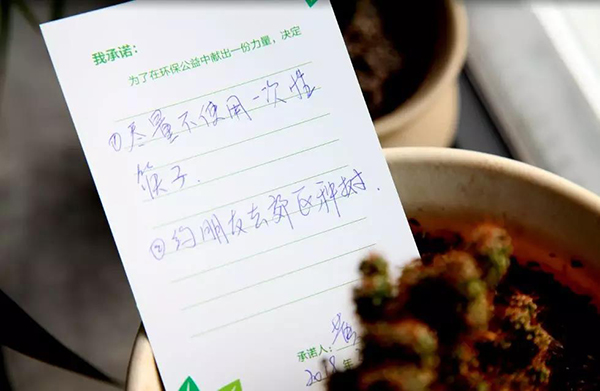 我承诺：
为了在环保公益中献出一份力量，决定
①尽量不使用一次性
筷子.
②约朋友去郊区种树.
承诺人：
年